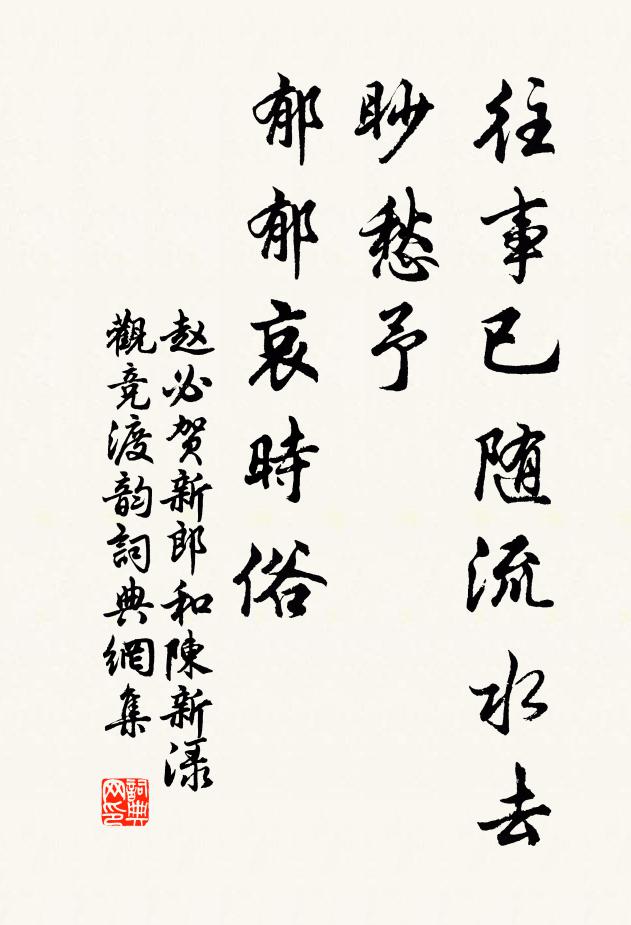 往事已随流水去
眇愁予
郁郁哀時俗
赵必贺新郎和陳新渌
觀竞渡韵詞典網集
詞典网印